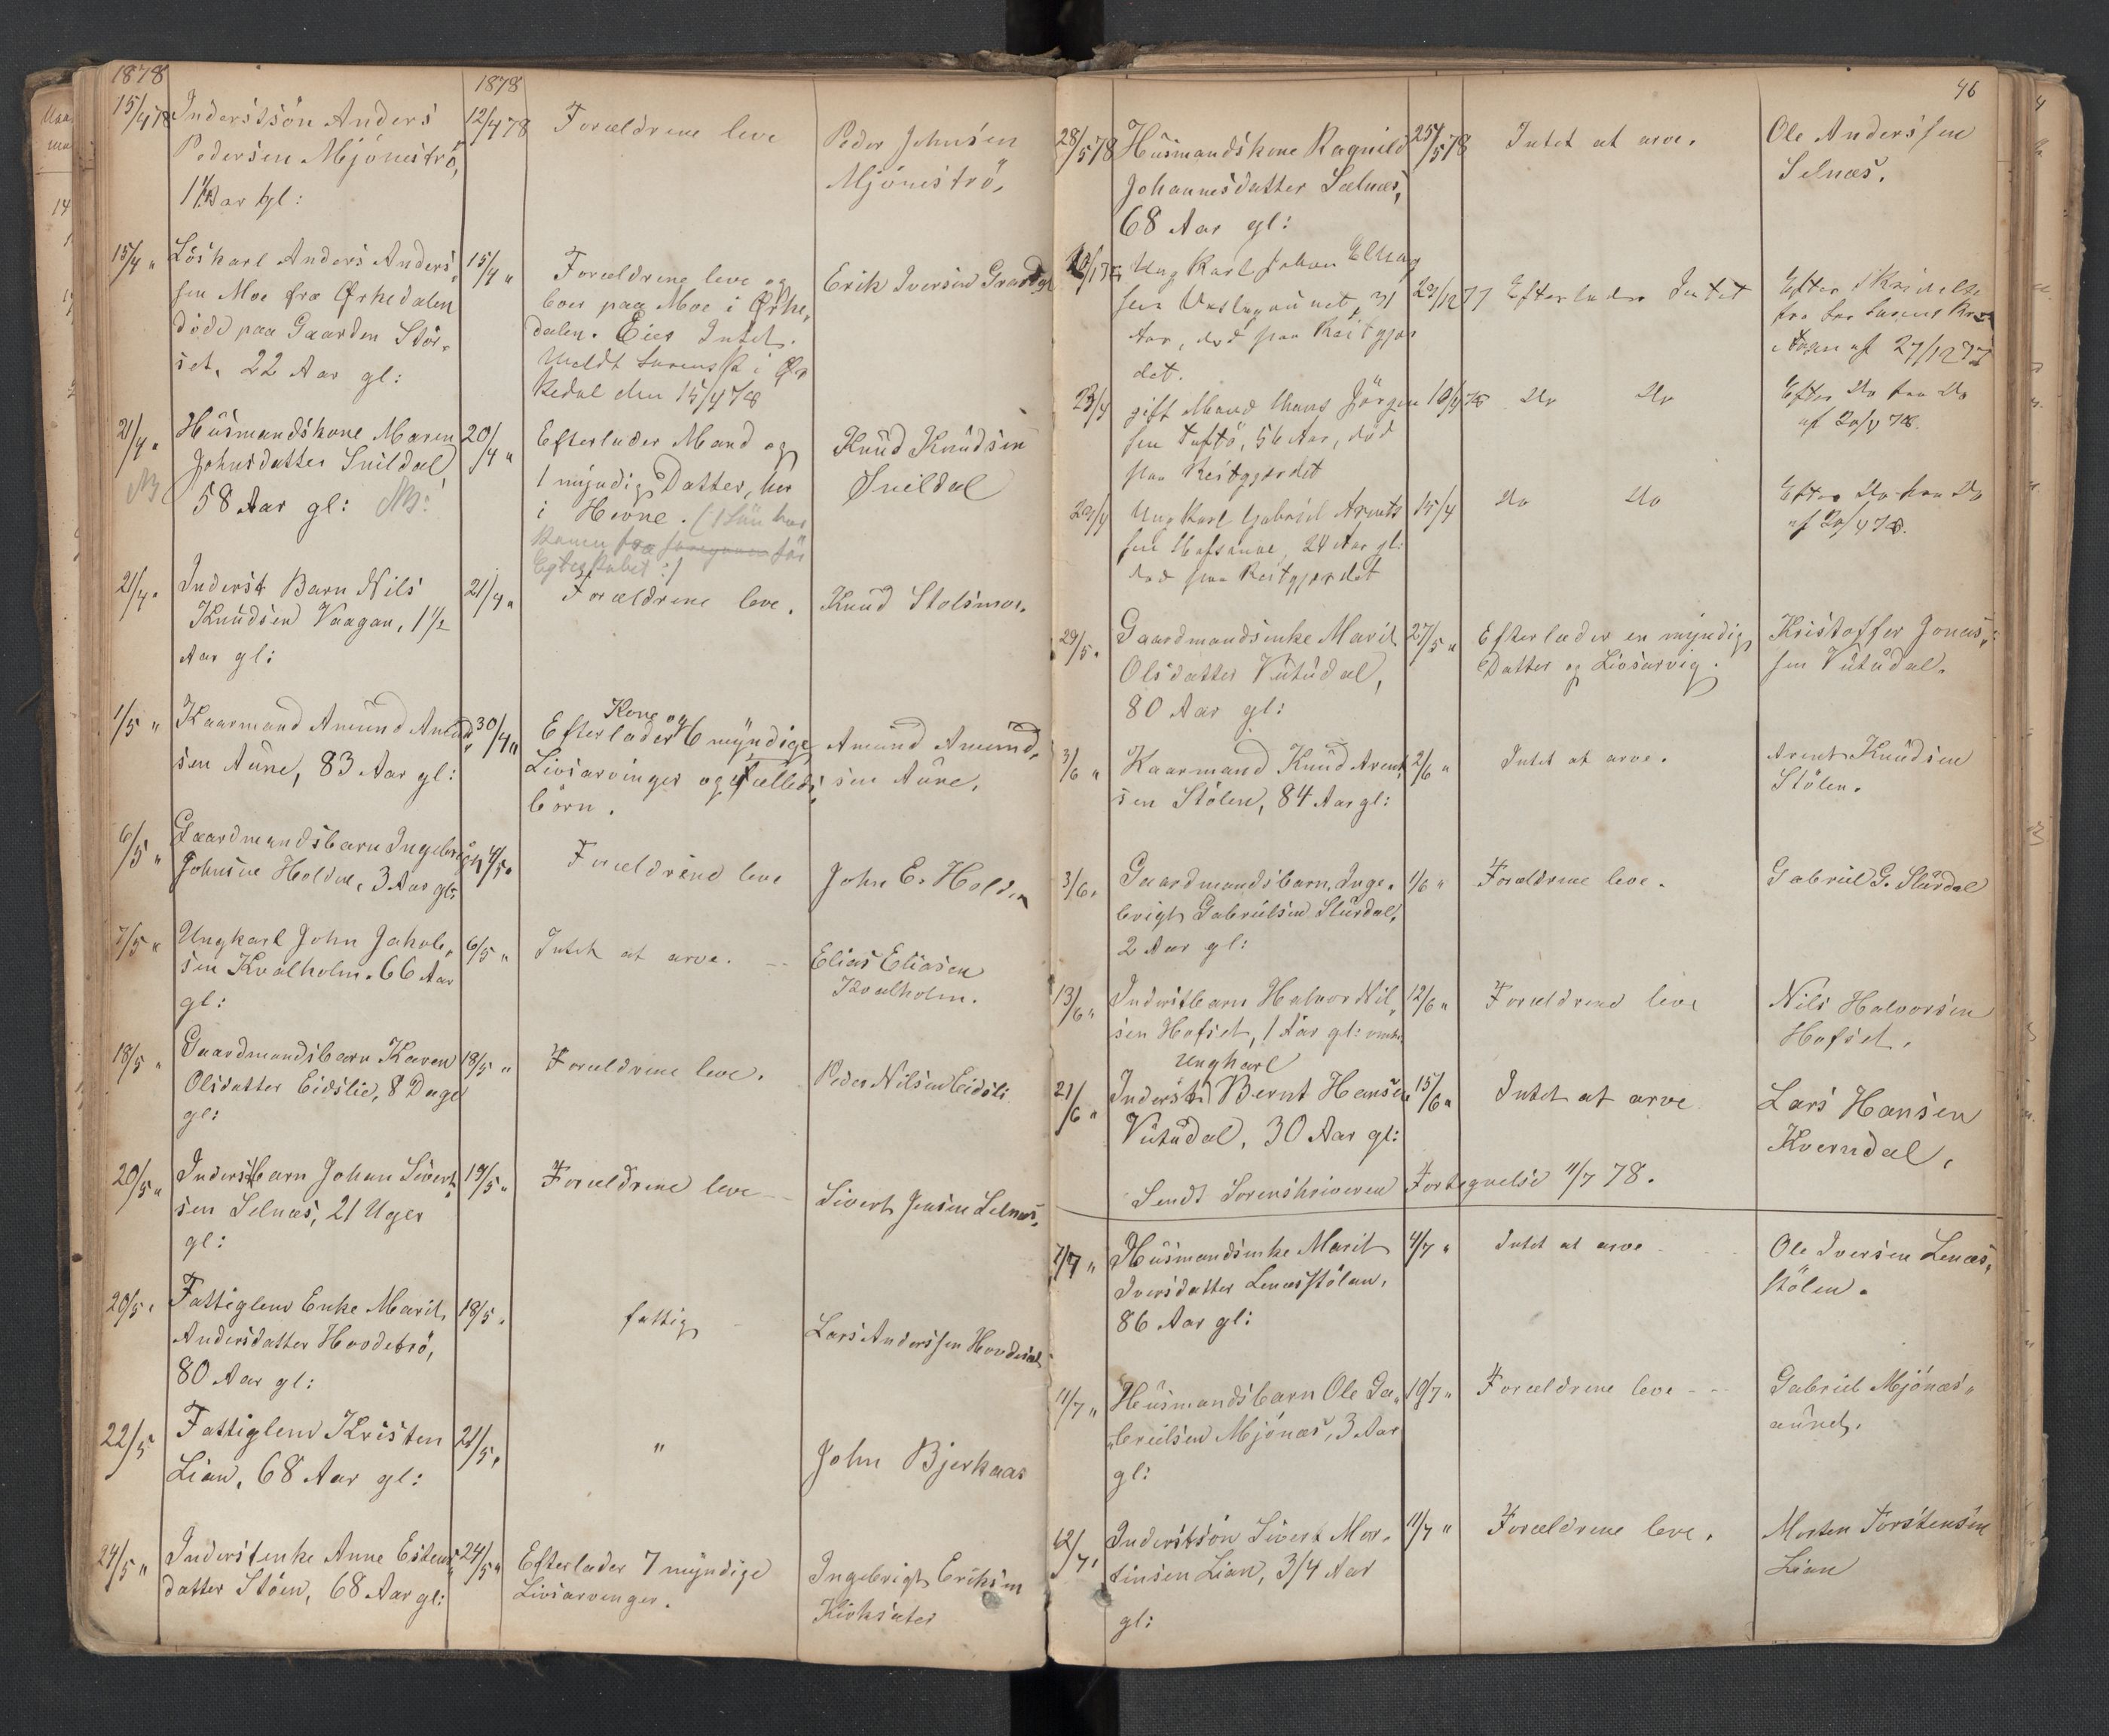 1878
1878
15/4 78 Inderstsön Anders 12/4 78 Forældrene leve Peder Johnsen
Pedersen Mjöniströ, Mjöniströ,
1 1/2 Aar gl:
15/4 " Löskarl Anders Anders- 15/4 " Forældrene leve og Erik Iversen
sen Moe fra Ørkedalen boer paa Moe i Ørke-
döde paa Gaarden Stör- dalen. Eier Intet.
set, 22 Aar gl: Meldt Sorensk i Ør
kedal den 15/4 78
21/4 " Husmandskone Maren 20/4 " Efterlader Mand og Knud Knudsen
NB Johnsdatter Snildal, 1 myndig Datter, her Snildal
58 Aar gl: NB! i Hevne. (1 Sön har
Konen fra för
Egteskabet :)
21/4 " Inderst Barn Nils 21/4 " Forældrene leve. Knud Stolsmo.
Knudsen Vaagan, 1 1/2
Aar gl:
1/5 " Kaarmand Amund 30/4 " Efterlader Kone og 6 myndige Amund Amund-
sen Aune, 83 Aar gl: Livsarvinger og fælleds sen Aune.
börn.
6/5 " Gaardmandsbarn Ingebrigt 4/5 " Forældrene leve John E. Holden
Johnsen Holden, 3 Aar gl:
7/5 " Ungkarl John Jakob- 6/5 " Intet at arve. -- Elias Eliasen
sen Kvalholm. 66 Aar Kvalholm.
gl:
18/5 " Gaardmandsbarn Karen 18/5 " Forældrene leve. Peder Nilsen Eidsli
Olsdatter Eidslie, 8 Dage
gl:
20/5 " Inderstbarn Johan Sivert- 19/5 " Forældrene leve -- Sivert Jensen Selnæs.
sen Selnæs, 21 Uger
gl:
20/5 " Fattiglem Enke Marit 18/5 " fattig - Lars Anderssen
Andersdatter Hovdetrö,
80 Aar gl:
22/5 Fattiglem Kristen 21/5 " " John Bjerkaas
Lian, 68 Aar gl:
24/5 " Inderstenke Anne Estens- 24/5 " Efterlader 7 myndige Ingebrigt Eriksen
datter Stöen, 68 Aar gl: Livsarvinger. Kirksæter
46
28/5 78 Husmandskone Ragnild 25/5 78 Intet at arve. Ole Anderssen
Johannesdatter Selnæs, Selnæs.
68 Aar gl:
Ungkarl Johan
sen 31 29/12 77 Efterlader Intet Efter Skrivelse
Aar, död paa Reitgjær fra
det. af 27/12 77
23/4 gift Mand Hans Jörgen 10/4 78 do do Efter do fra do
sen Tuftö, 56 Aar, död af 20/4 78.
paa Reitgjærdet
23/4 Ungkarl Gabriel Arnts 15/4 do do Efter do fra do
sen 24 Aar gl: af 20/4 78.
död paa Reitgjærdet
29/5 " Gaardmandsenke Marit 27/5 " Efterlader en myndig Kristoffer Jonas-
Olsdatter Vutudal, Datter og Livsarvig. sen Vutudal.
80 Aar gl:
3/6 " Kaarmand Knud Arent- 2/6 " Intet at arve. Arent Knudsen
sen Stölen, 84 Aar gl: Stölen.
3/6 " Gaardmandsbarn Inge- 1/6 " Forældrene leve. Gabriel G. Slurdal
brigt Gabrielsen Slurdal,
2 Aar gl:
13/6 " Inderstbarn Halvor Nil- 12/6 " Forældrene leve Nils Halvorsen
sen Hofset, 1 Aar gl: omtr. Hofset.
Ungkarl
21/6 " Inderst Bernt Hansen 15/6 " Intet at arve Lars Hansen
Vutudal, 30 Aar gl: Kverndal.
Sendt Sorenskriveren Fortegnelse 11/7 78.
7/7 " Husmandsenke Marit 4/7 " Intet at arve - Ole Iversen Lenæs-
Iversdatter Lenæsstölen, stölen.
86 Aar gl:
11/7 " Husmandsbarn Ole Ga- 10/7 " Forældrene leve -- Gabriel Mjönæs-
brielsen Mjönæs, 3 Aar aunet.
gl:
12/7 " Inderstsön Sivert Mor- 11/7 " Forældrene leve. Morten Torstensen
tinsen Lian, 3/4 Aar Lian
gl: